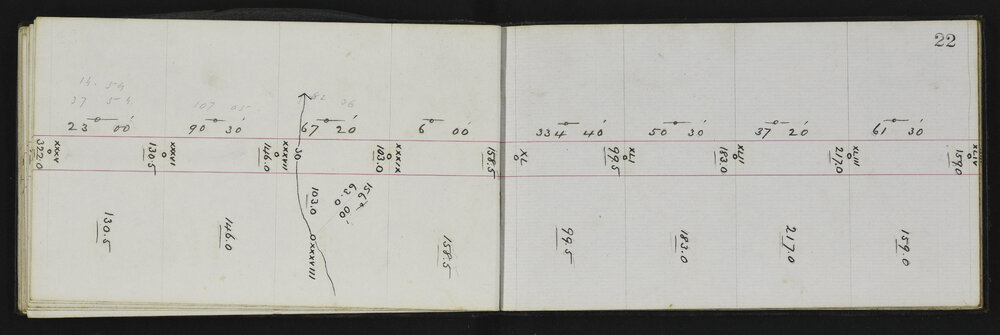 22
14. 54
37 54
107 05
23 00'
90 30'
67 20'
6 00'
334 40'
50 30'
37 20'
61 30'
XXXV
322.0
XXXVI
130.5
XXXVII
146.0
30
XXXIX
103.0
158.5
XL
XLI
99.5
XLII
183.0
XLIII
217.0
XLIV
159.0
130.5
146.0
103.0
XXXVIII
63.0
158.5
99.5
183.0
217.0
159.0